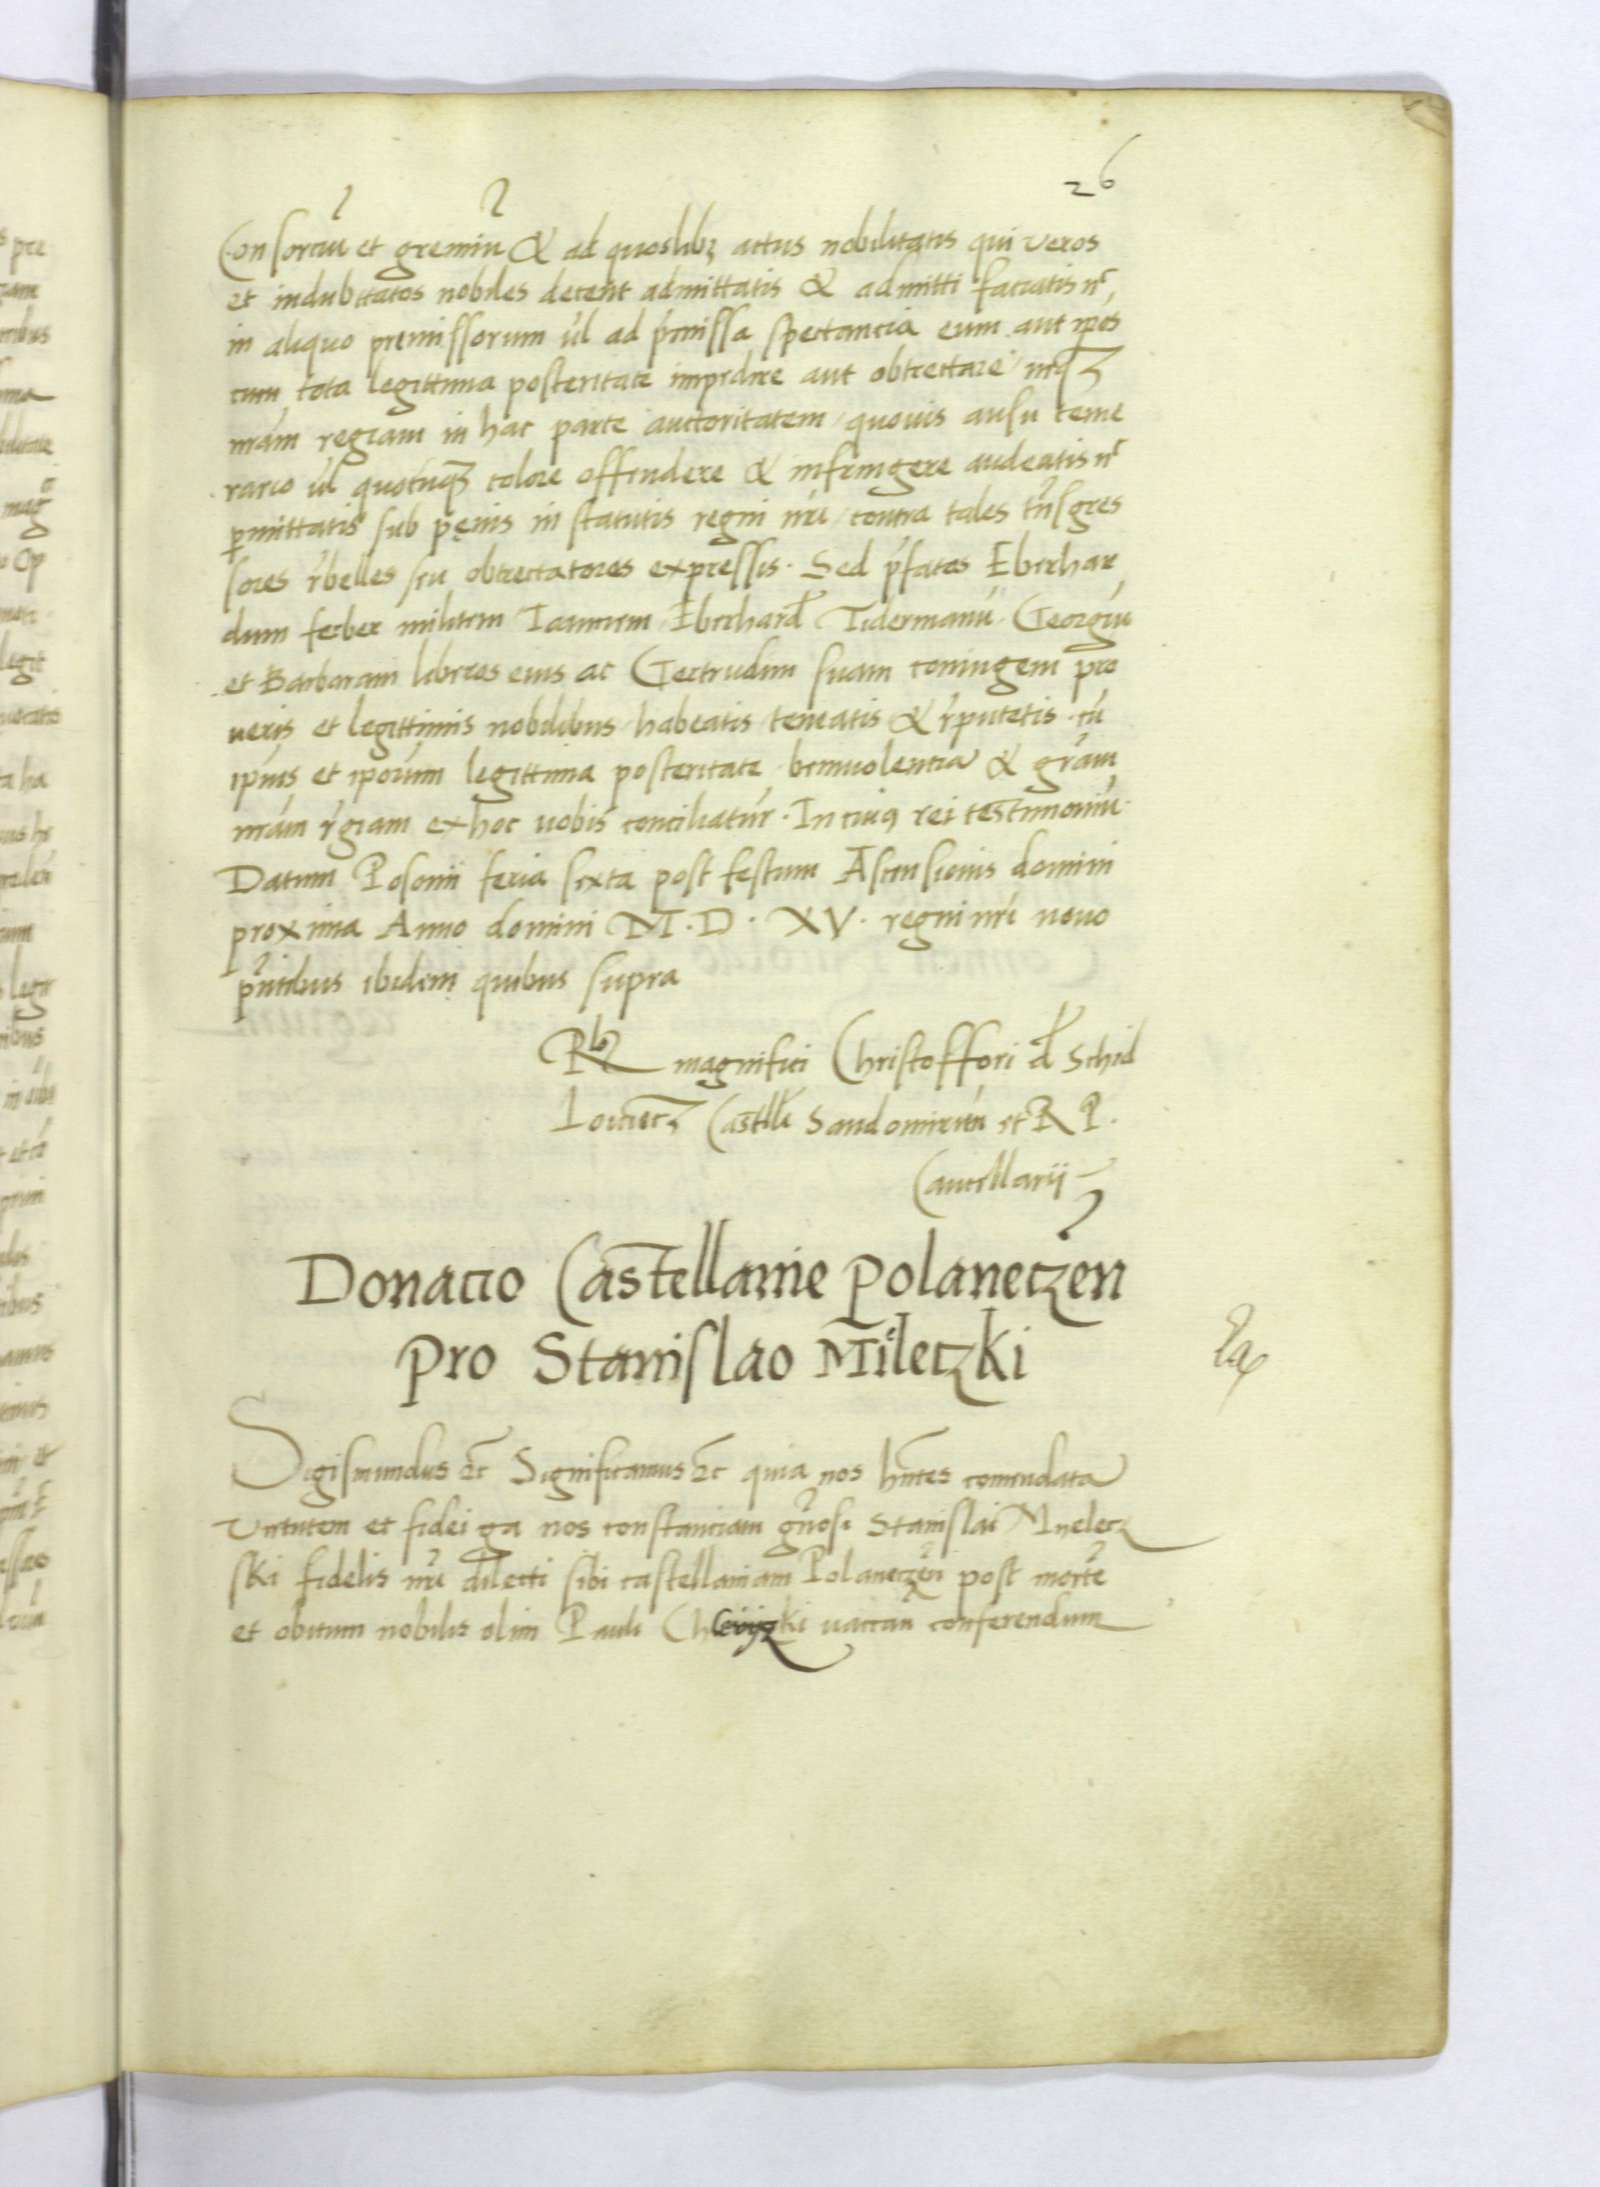 26
Consorciū et gremiū & ad quoslibꝫ actus nobilitatis qui veros
et indubitatos nobiles decent admittatis & admitti faciatis nc̄
in aliquo premissorum vl̄ ad p̄missa spectancia eum aut ip̄os
cum tota legittima posteritate impedire aut obtrectare neqꝫ
nr̄am regiam in hac parte auctoritatem quouis ausu teme
rario vl̄ quocūqꝫ colore offendere & infringere audeatis nc̄
ꝑmittatis sub pęnis in statutis regni nr̄i contra tales tn̄sgres
sores r̄belles seu obtrectatores expressis. Sed p̄fatos Eberhar
dum ferber militem Iancurm Eberhard Tidermanū Georgiū
et Barbaram liberos eius ac Gertrudim suam coniugem pro
ueris et legittimis nobilibus habeatis teneatis & r̄putetis cū
ip̄ius et ip̄orum legittima posteritate beniuolentia & gr̄am
nr̄am r̄giam ex hoc uobis conciliatur̄. In cuiꝯ rei testimoniū.
Datum Posonii feria sexta post festum Ascensionis domini
proxima Anno domini M.D.XV. regni nr̄i nono
p̄ntibus ibidem quibus supra
Rl̄o magnifici Christoffori d̄ Schid
louiecꝫ Castll̄i Sandomirien̄ et R P.
Cancellarii
Donacio Castellanie Polaneczen̄
pro Stanislao Mileczki
Sigismundus ꝛc̄ Significamus ꝛc̄ quia nos hn̄tes comendata
virtutem et fidei ꝗa nos constanciam gn̄osi Stanislai Mielecz
ski fidelis nr̄i dilecti sibi castellaniam Polaneczen̄ post morte
et obitum nobilis olim Pauli Chczki vacan̄ conferendum